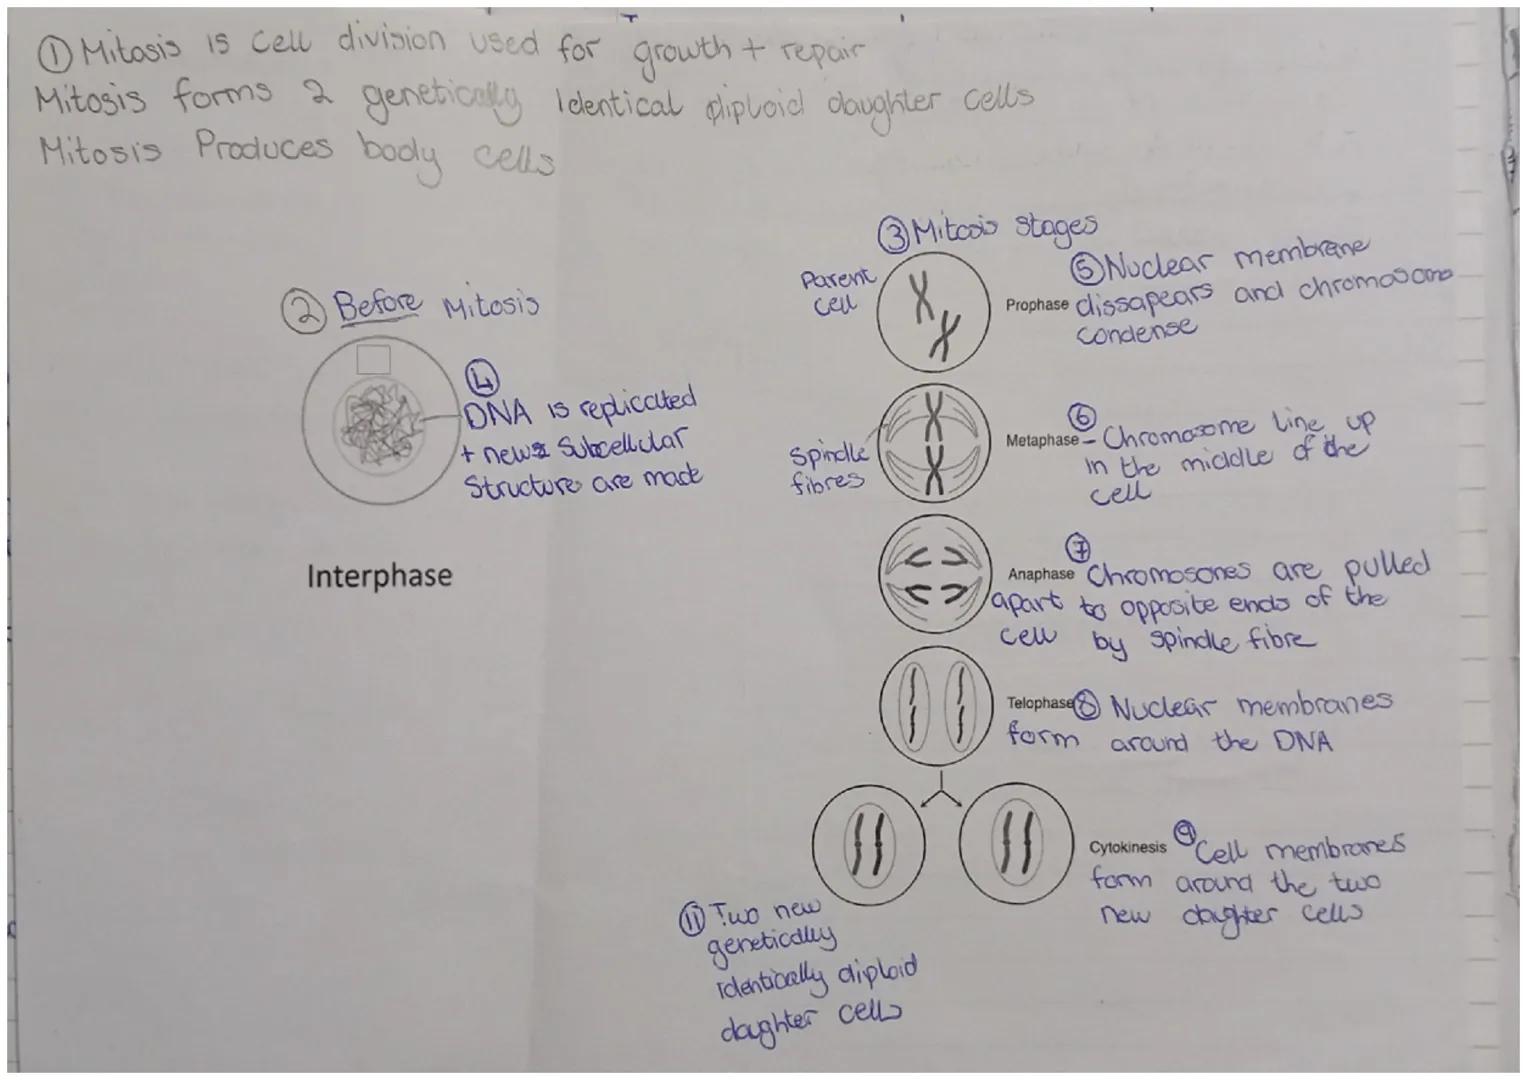 ① Mitosis is Cell division used for growth + repair
Mitosis forms 2 genetically Identical diploid daughter cells
Mitosis Produces body cells
③ Mitosis stages
Parent
cell
⑤ Nuclear membrane
Prophase dissapears and chromosome
condense
② Before Mitosis
④
DNA is replicated
+ new Subcellular
Structure are made
Interphase
⑥
Metaphase – Chromosome line up
in the middle of the
cell
Spindle
fibres
⑦
Anaphase Chromosones are pulled
apart to opposite ends of the
cell by spindle fibre
Telophase ⑧ Nuclear membranes
form around the DNA
Cytokinesis ⑨ Cell membranes
form around the two
new daughter cells
⑪ Two new
genetically
identically diploid
daughter cells